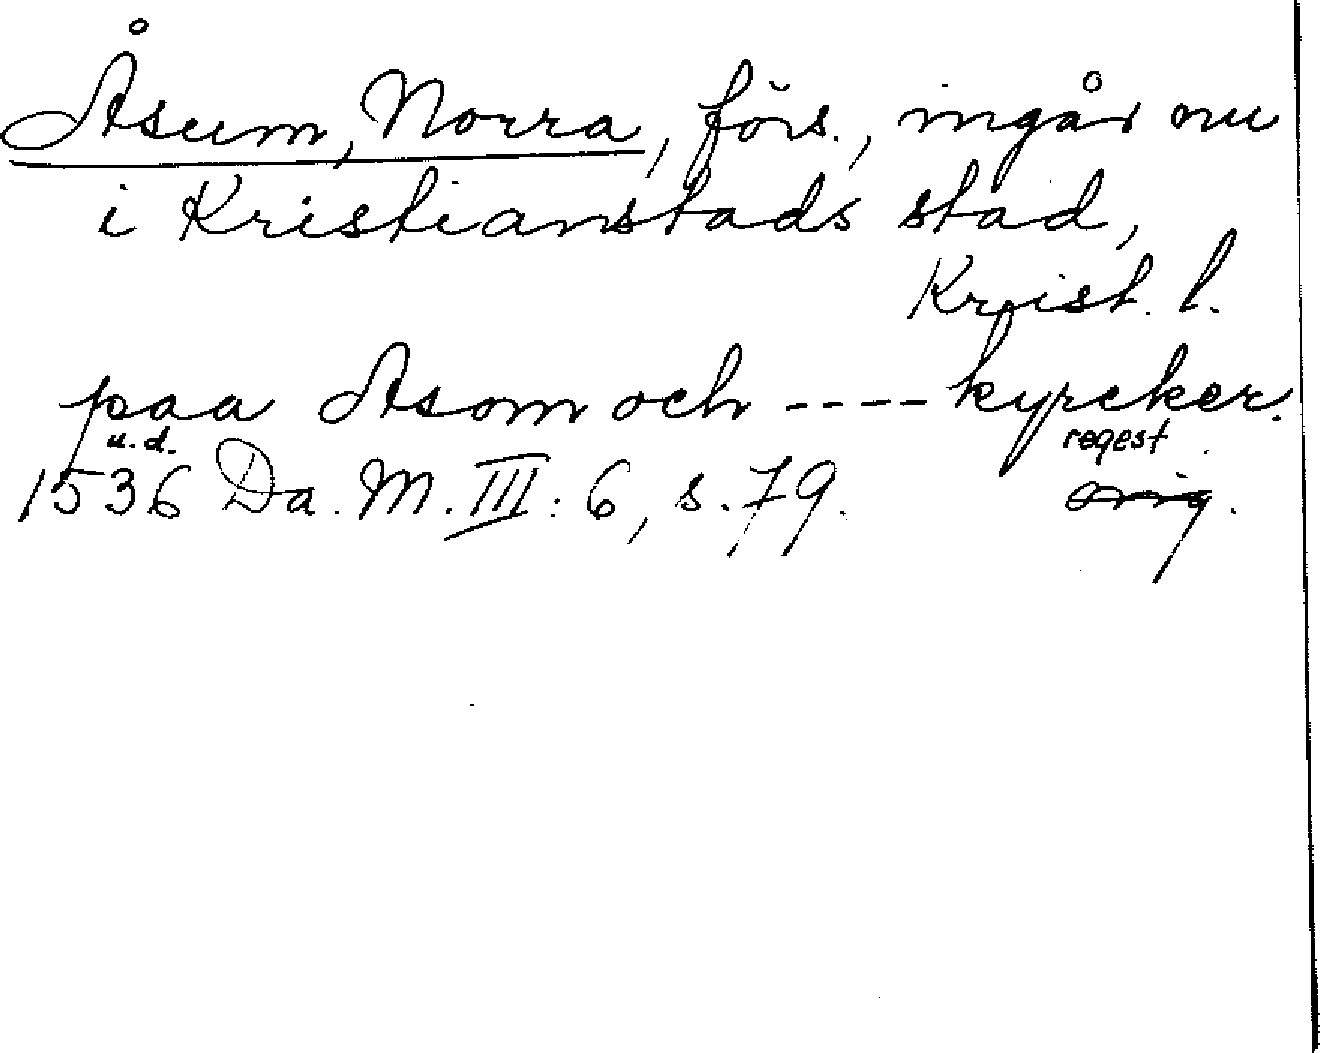 Åsum, Norra, förs., ingår nu
i Kristianstads stad,
Krist. l.
paa Asom och ---- kyrcker.
u.d. regest
1536 Da. M. III: 6, s. 79. orig.